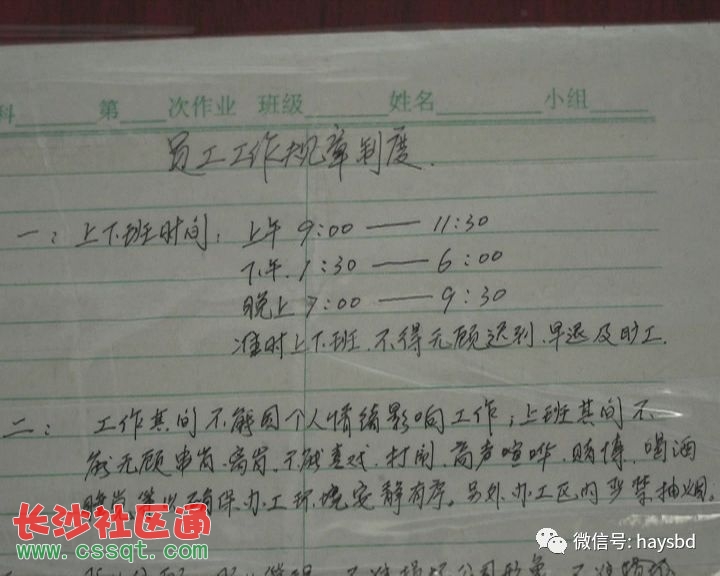 科____第___次作业 班级______姓名________小组_____
员工工作规章制度.
一：上下班时间：上午 9:00 —— 11:30
下午.1:30 —— 6:00
晚上 7:00 —— 9:30
准时上下班.不得无顾迟到.早退及旷工.
二： 工作其间不能因个人情绪影响工作；上班其间不
能无顾串岗.离岗.不能直戏.打闹.高声喧哗.赌博.喝酒
睡岗等以确保办工环境安静有序。另外.办工区内严禁抽烟.
长沙社区通
www.cssqt.com
微信号: haysbd